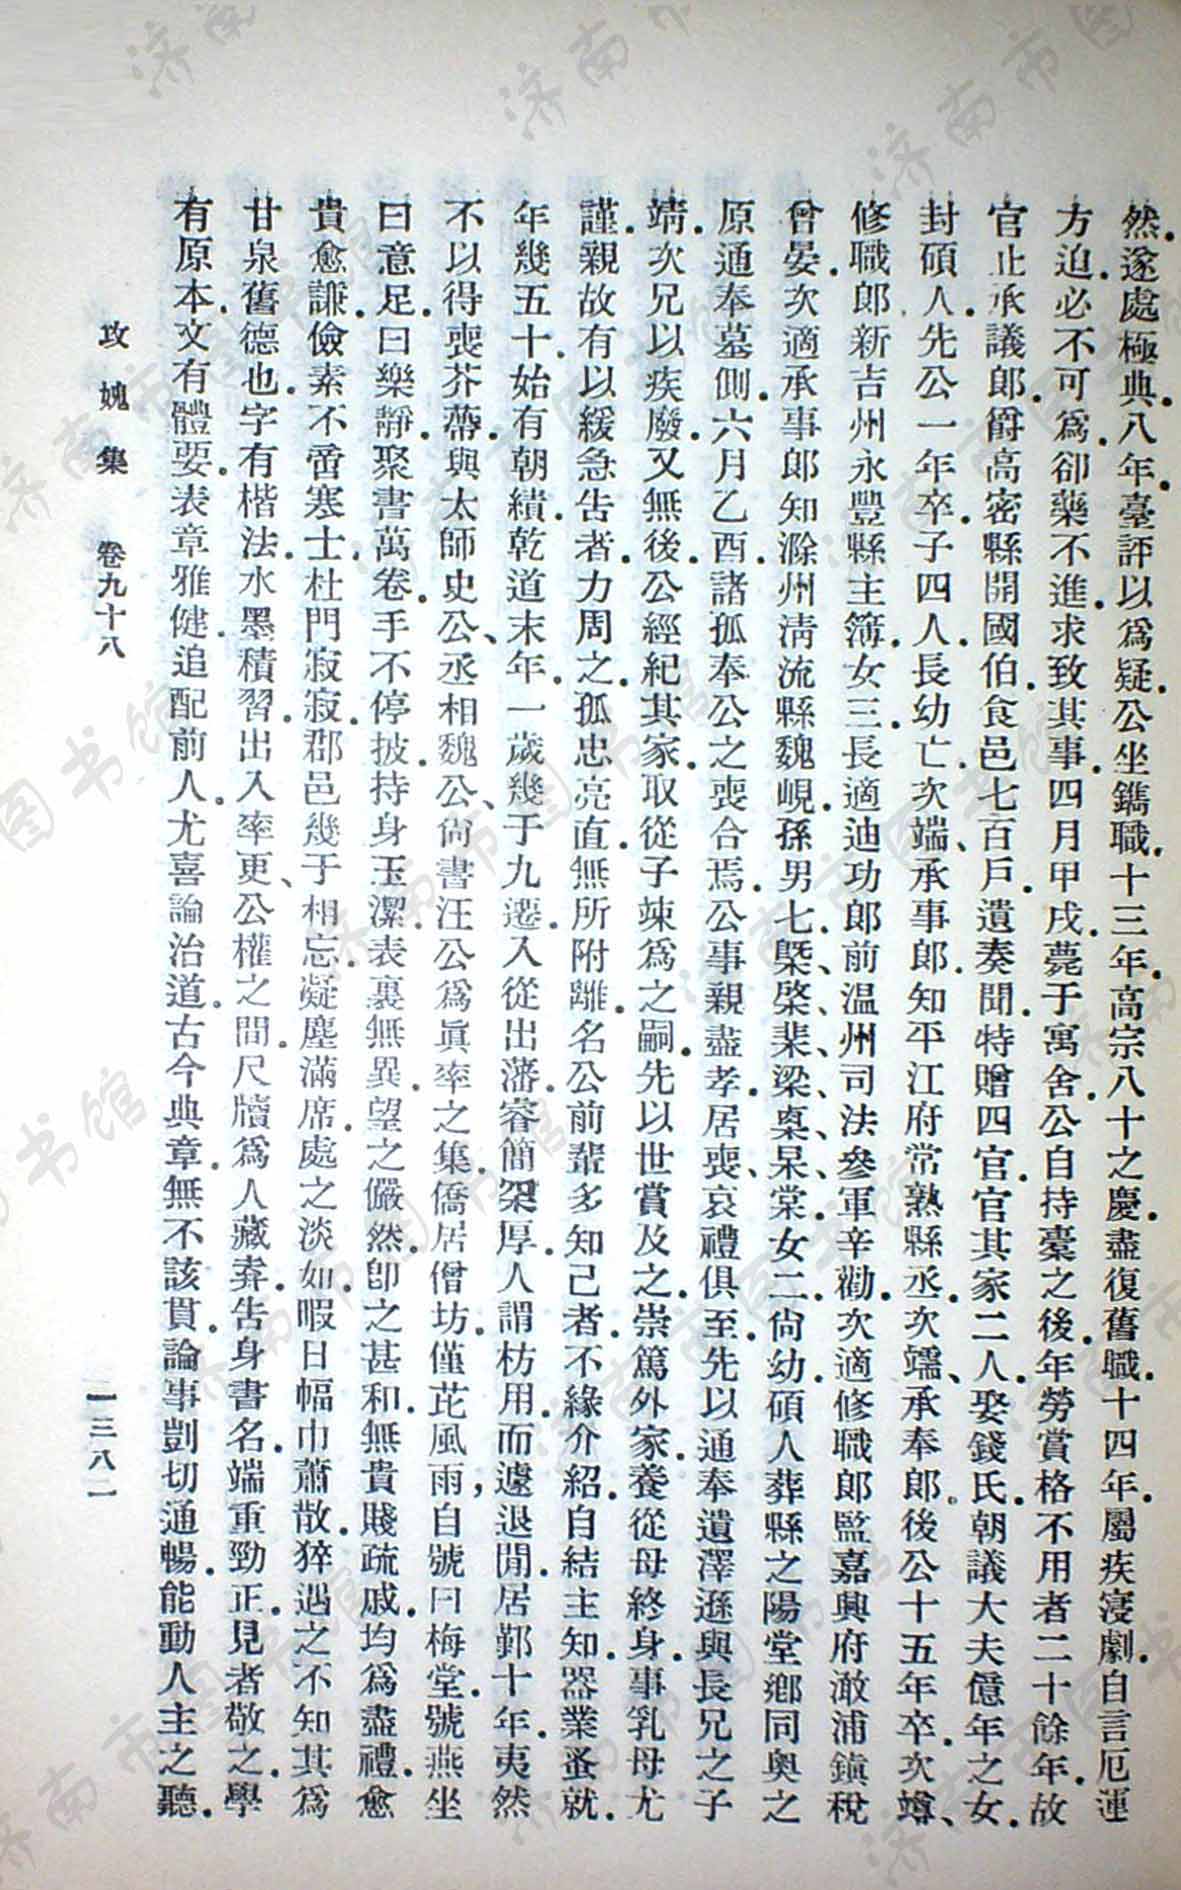 然．遂處極典．八年．臺評以爲疑．公坐鐫職．十三年．高宗八十之慶．盡復舊職．十四年．屬疾寖劇．自言厄運
方迫．必不可爲．卻藥不進．求致其事．四月甲戌．薨于寓舍．公自持橐之後．年勞賞格不用者二十餘年．故
官止承議郎．爵高密縣開國伯．食邑七百戶．遺奏聞．特贈四官．官其家二人．娶錢氏．朝議大夫億年之女．
封碩人．先公一年卒．子四人．長幼亡．次端、承事郎．知平江府常熟縣丞．次竑、承奉郎．後公十五年卒．次竴、
修職郎新吉州永豐縣主簿．女三．長適迪功郎前温州司法參軍辛勸．次適修職郎監嘉興府澉浦鎮稅
曾晏．次適承事郎知滁州清流縣魏峴．孫男七．槩、棨、棐、梁、㮚、杲、棠．女二．尙幼．碩人葬縣之陽堂鄉同奥之
原通奉墓側．六月乙酉．諸孤奉公之喪合焉．公事親盡孝．居喪、哀禮俱至．先以通奉遺澤遜與長兄之子
靖．次兄以疾廢．又無後．公經紀其家．取從子竦爲之嗣．先以世賞及之．崇篤外家．養從母終身．事乳母尤
謹．親故有以緩急告者．力周之．孤忠亮直．無所附離．名公前輩多知己者．不緣介紹．自結主知．器業蚤就．
年幾五十．始有朝績．乾道末年．一歲幾于九遷．入從出藩．睿簡深厚．人謂枋用．而遽退閒．居鄞十年．夷然
不以得喪芥蔕．與太師史公、丞相魏公、尙書汪公爲眞率之集．僑居僧坊．僅芘風雨，自號曰梅堂．號燕坐
曰意足．曰樂靜．聚書萬卷．手不停披．持身玉潔．表裏無異．望之儼然．卽之甚和．無貴賤疏戚．均爲盡禮．愈
貴愈謙．儉素不啻寒士．杜門寂寂．郡邑幾于相忘．凝塵滿席．處之淡如．暇日幅巾蕭散．猝遇之不知其爲
甘泉舊德也．字有楷法．水墨積習．出入率更、公權之間．尺牘爲人藏弆．告身書名．端重勁正．見者敬之．學
有原本．文有體要．表章雅健．追配前人．尤喜論治道．古今典章．無不該貫．論事剴切通暢．能動人主之聽．
攻媿集　卷九十八　一三八一